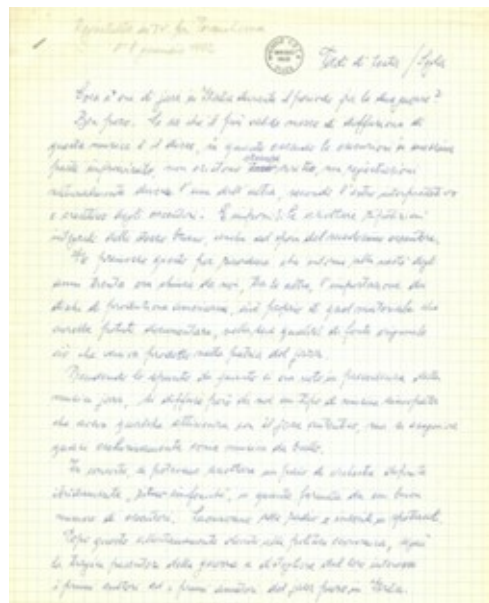 Testi di testa / Sigla
Cosa c'era di jazz in Italia durante il periodo fra le due guerre?
Ben poco. Si sa che il più valido mezzo di diffusione di
questa musica è il disco, in quanto essendo le esecuzioni in massima
parte improvvisate, non esistono
naturalmente diverse l'una dall'altra, secondo l'estro interpretativo
e creativo degli esecutori. È
integrali dello stesso brano, anche ad opera del medesimo esecutore.
Ho premesso questo per ricordare che intorno alla metà degli
anni trenta era chiusa da noi, tra le altre, l'importazione dei
dischi di produzione americana, cioè proprio di quel materiale che
avrebbe potuto documentare, nella sua qualità di fonte originale
ciò che veniva prodotto nella patria del jazz.
Prendendo lo spunto da quanto si era noto in precedenza della
musica jazz, si diffuse però da noi un tipo di musica sincopata
che aveva qualche attinenza con il jazz autentico, ma si eseguiva
quasi esclusivamente come musica da ballo.
In concerto, si potevano ascoltare un paio di orchestre definite
ritmo sinfoniche, in quanto formate da un buon
numero di esecutori. Suonavano alla radio e in
Dopo questo
la tragica parentesi della guerra a distogliere dal loro interesse
i primi cultori ed i primi amatori del jazz in Italia.